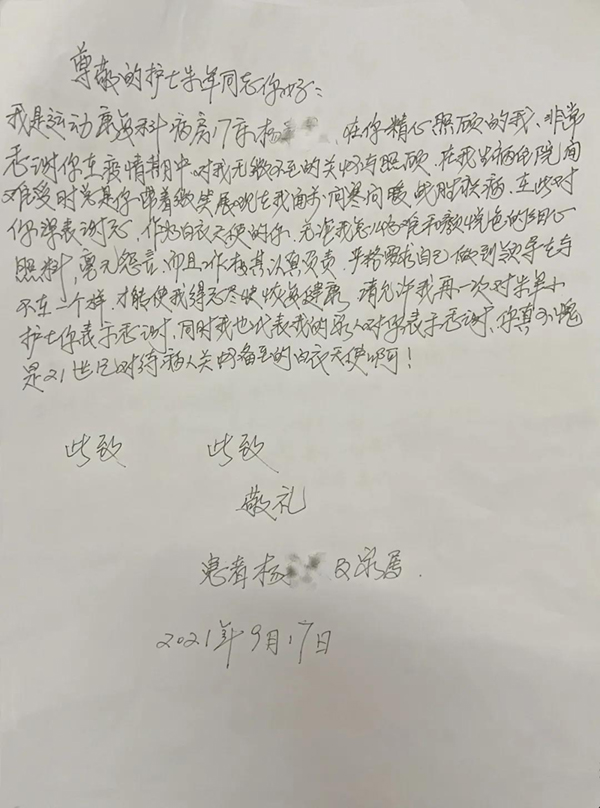 尊敬的护士朱单同志你好:
我是运动康复科病房17床杨 在你精心照顾的我、非常
感谢你在疫情期中、对我无微不至的关怀与照顾、在我生病住院间
难受时总是你带着微笑展现在我面前、问寒问暖战胜疾病、在此对
你深表谢意、作为白衣天使的你、无论我怎么
照料、毫无怨言、而且工作极其认真负责、严格要求自己、做到领导在与
不在一个样、才能使我得已尽快恢复健康、请允许我再一次对朱单小
护士你表示感谢、同时我也代表我的家人对你表示感谢、你真不愧
是21世纪对待病人关怀备至的白衣天使啊!
此致 此致
敬礼
患者杨 及家属.
2021年9月17日